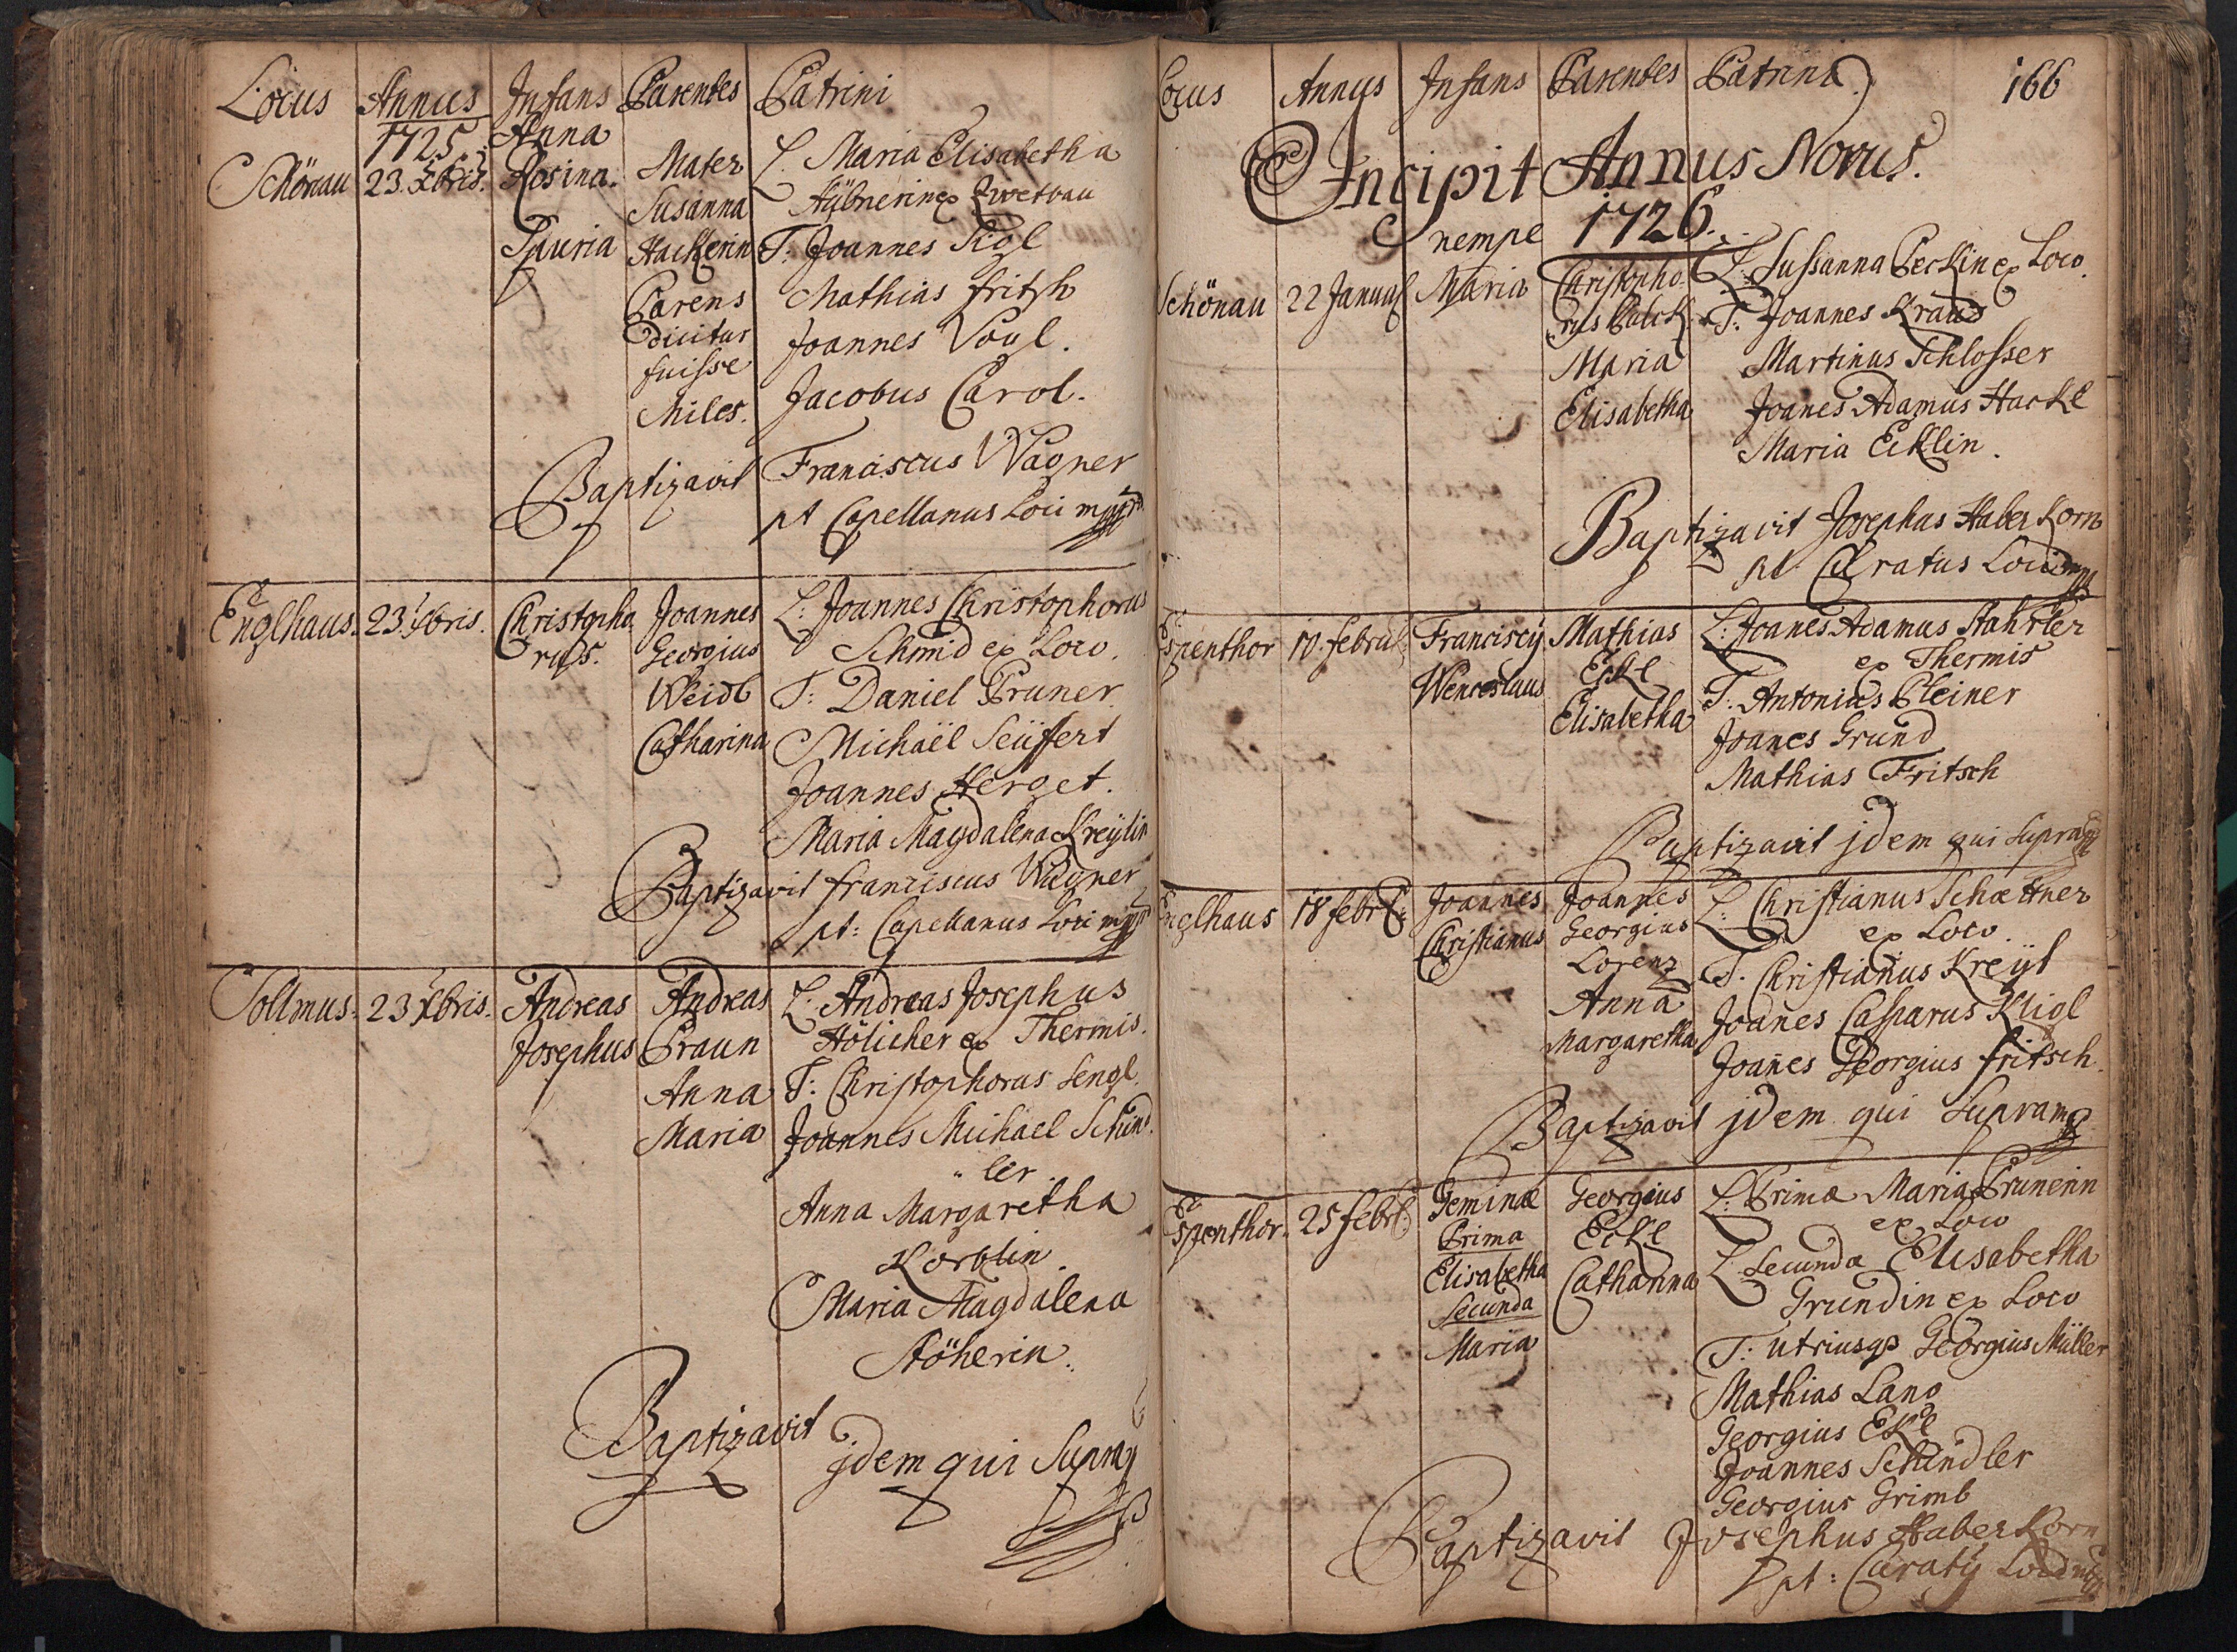 Locus Annus Infans Parentes Patrini
1725. Anna
Schönau 23. Xbris. Rosina. Mater L. Maria Elisabetha
Susanna Hübnerin ex Zwetbau
Spuria Hackerin T: Joannes Sigl
Parens Mathias fritsch
dicitur Joannes Vogl.
fuisse
Miles. Jacobus Carol.
Baptizavit Franciscus Wagner
pt Capellanus Loci mpp
Englhaus. 23. Xbris. Christopho Joannes L: Joannes Christophorus
rus. Georgius Schmid ex Loco.
Weidl T: Daniel Pruner
Catharina Michaël Seüffert
Joannes Herget.
Maria Magdalena Kreÿlin
Baptizavit franciscus Wagner
pt: Capellanus Loci mpp
Sollmus. 23 Xbris. Andreas Andreas L. Andreas Josephus
Josephus Praun Hölicher ex Thermis.
Anna T: Christophorus Sengl.
Maria Joannes Michael Schind.
ler
Anna Margaretha
Korblin.
Maria Magdalena
Stöherin.
Baptizavit
jdem qui Supra
Locus Annus Infans Parentes Patrini 166
Incipit Annus Novus.
nempe 1726.
Schönau 22 Januar Maria Christopho- L: Sussanna Peckin ex Loco.
rus Balck T: Joannes Kraus
Maria Martinus Schlosser
Elisabetha Joanes Adamus Hackl
Maria Ecklin.
Baptizavit Josephus Haberkorn
pt Curatus Loci mpp
Espenthor 10. februar Franciscus Mathias L: Joanes Adamus Stahrler
Wenceslaus Eckl ex Thermis
Elisabetha T: Antonius Pleiner
Joanes Grund
Mathias Fritsch
Baptizavit jdem qui Supra
Englhaus 18 febr Joannes Joannes L: Christianus Schættner
Christianus Georgius ex Loco.
Lorenz T. Christianus Kreÿl
Anna Joanes Casparus Kligl
Margaretha Joanes Georgius fritsch.
Baptizavit jdem qui Supra
Espenthor. 25 febr Geminæ Georgius L: Primæ Maria Prunerin
Prima Eckl ex Loco
Elisabetha Catharina L. Secundæ Elisabetha
Secunda Grundin ex Loco
Maria T: utriusqs Georgius Müller
Mathias Lang
Georgius Ekl
Joannes Schindler
Georgius Grimb
Baptizavit Josephus Haberkorn
pt: Curatus Loci